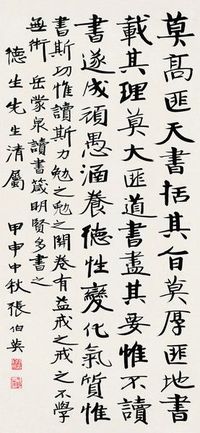 莫高匪天書括其旨莫厚匪地書
載其理莫大匪道書盡其要惟不讀
書遂成頑愚涵養德性變化氣質惟
書斯功惟讀斯力勉之勉之開卷有益戒之戒之不學
無術 岳蒙泉讀書箴明賢多書之
德生先生清屬
甲申中秋張伯英